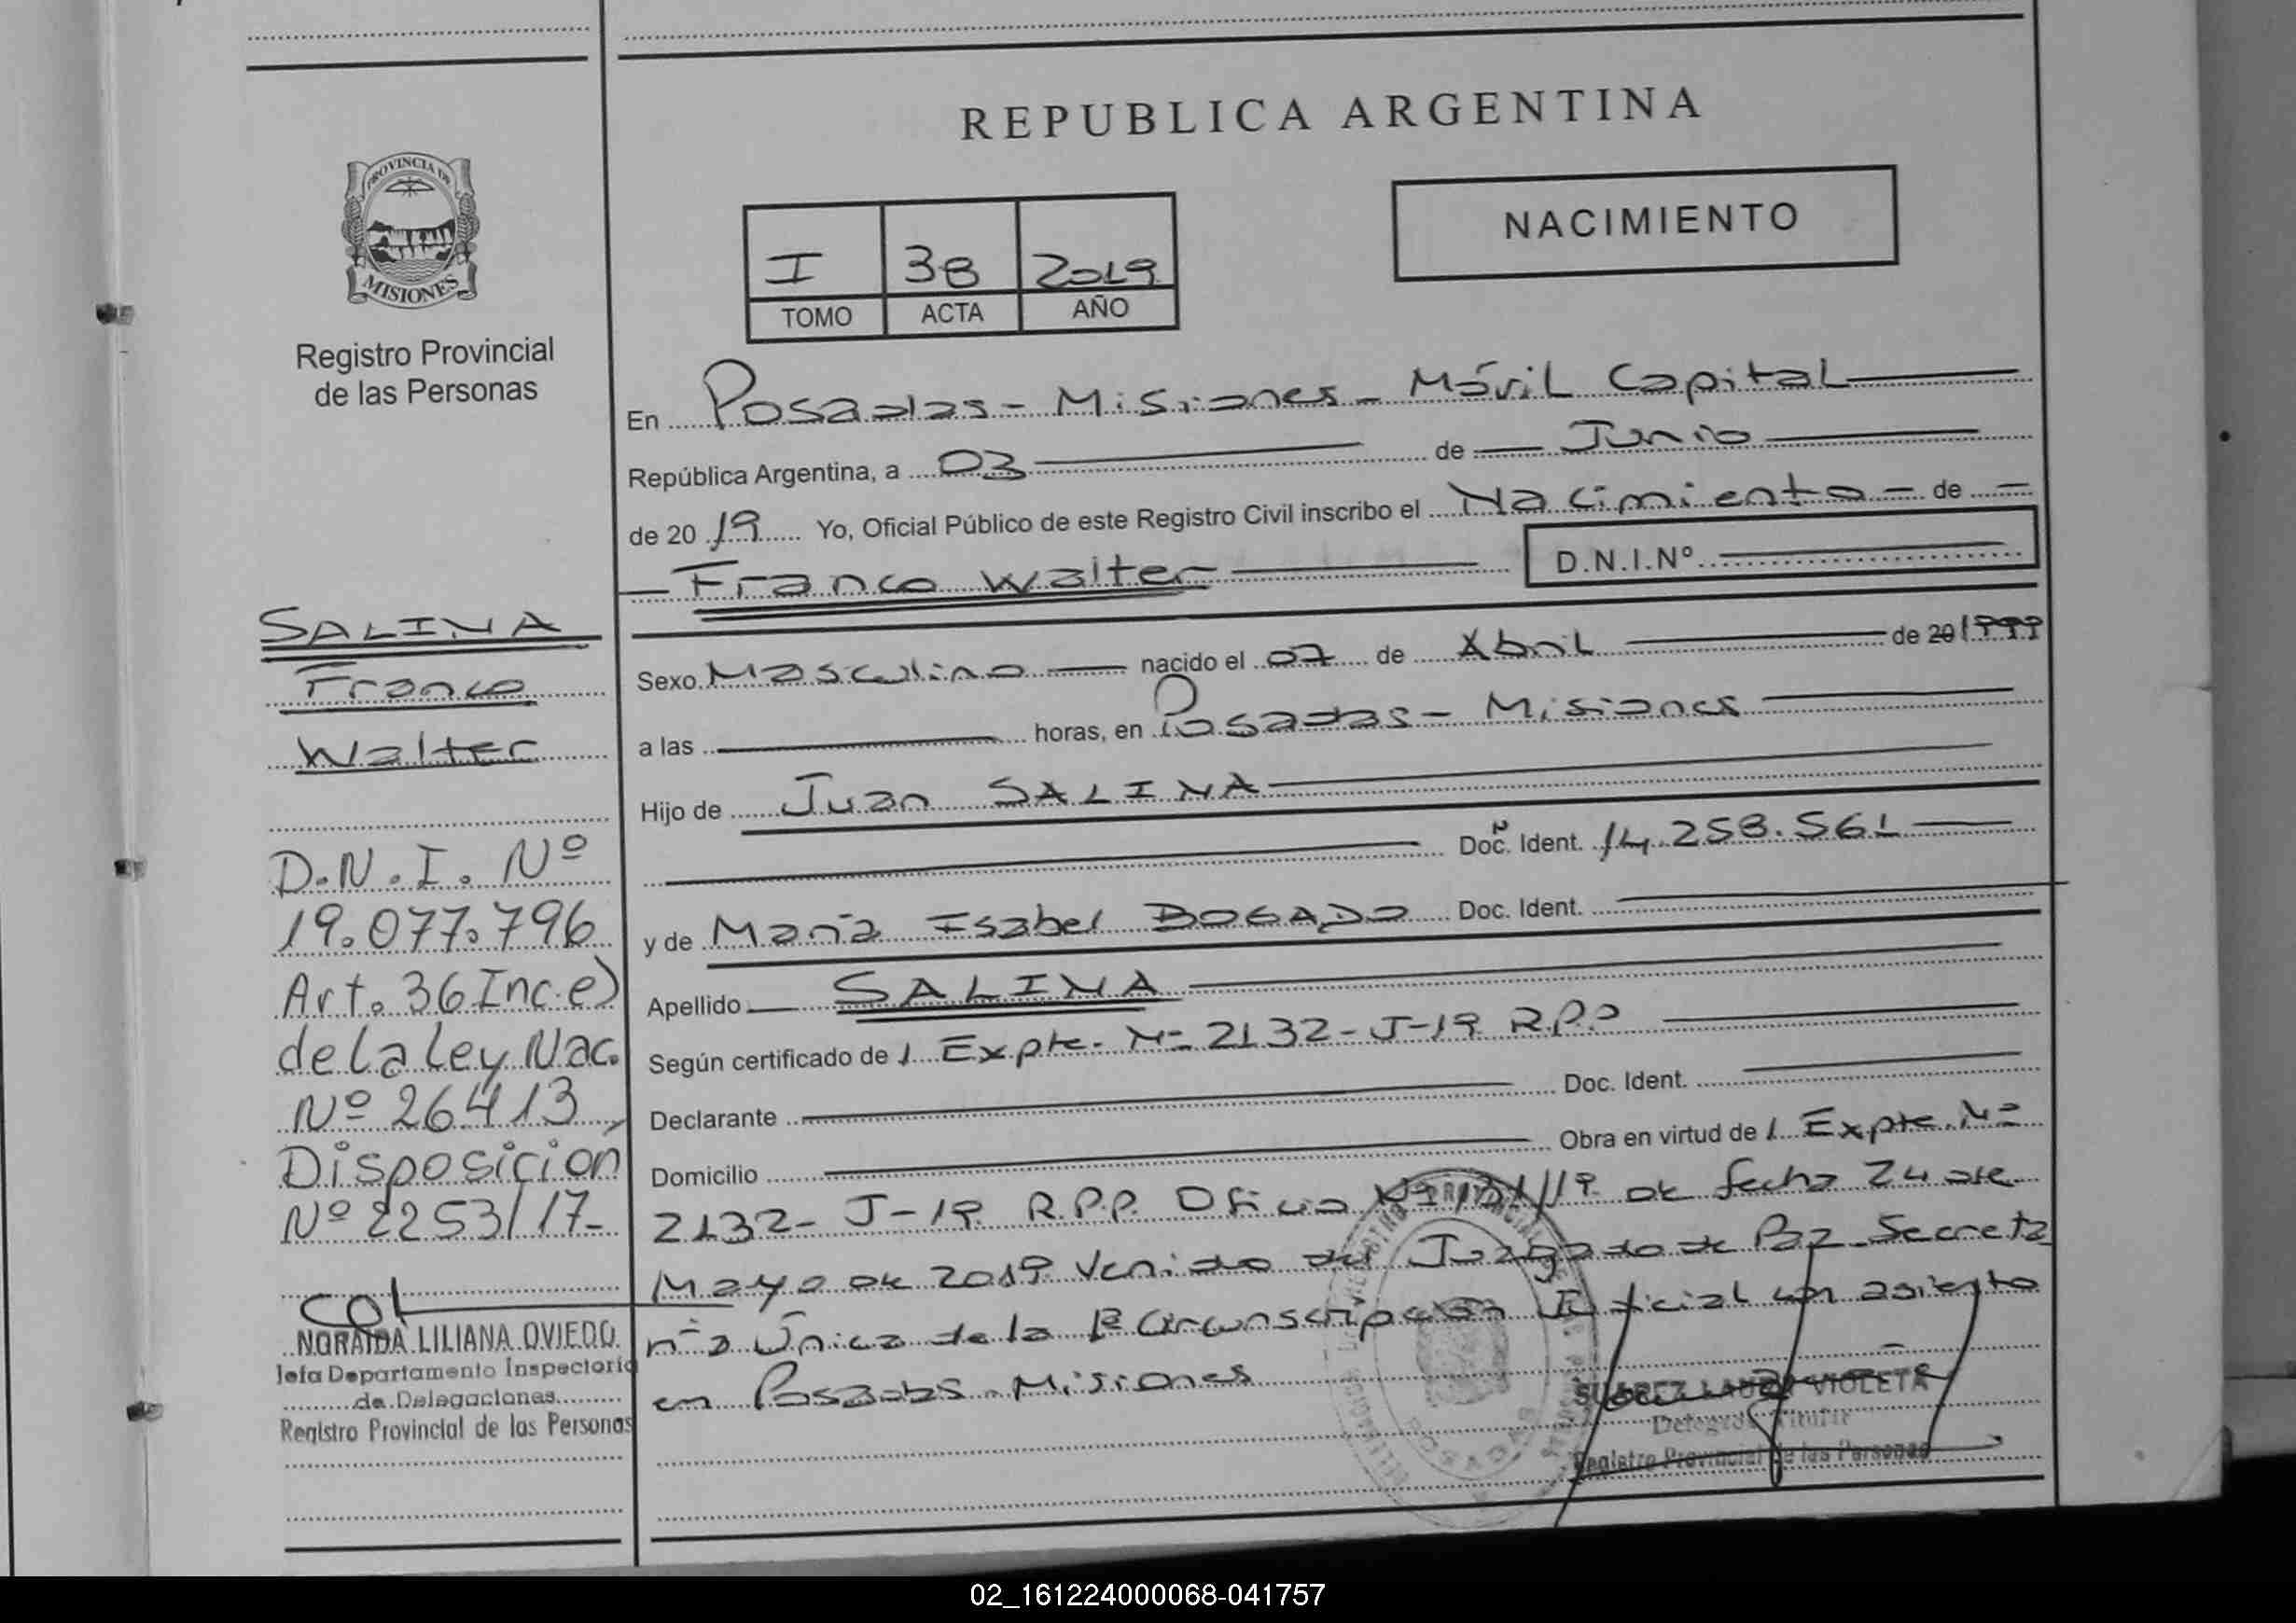 REPUBLICA ARGENTINA
PROVINCIA DE
MISIONES
Registro Provincial
de las Personas
NACIMIENTO
I 38 2019
TOMO ACTA AÑO
En Posadas - Misiones - Móvil Capital
República Argentina, a 03 de Junio
de 20 19 Yo, Oficial Público de este Registro Civil inscribo el Nacimiento - de -
Franco Walter
D.N.I.Nº
SALINA
Franco
Walter
D.N.I. Nº
19.077.796
Art. 36 Inc. e)
de la Ley Nac.
Nº 26413,
Disposición
Nº 2253/17-
NORAIDA LILIANA OVIEDO
Jefa Departamento Inspectoria
de Delegaciones
Registro Provincial de las Personas
Sexo Masculino nacido el 07 de Abril de 20 1999
a las horas, en Posadas - Misiones
Hijo de Juan SALINA
Doc. Ident. 14.258.561
y de María Isabel BOGADO Doc. Ident.
Apellido SALINA
Según certificado de / Expte. Nº 2132-J-19 R.P.P
Declarante Doc. Ident.
Domicilio Obra en virtud de / Expte. Nº
2132- J-19 R.P.P. Oficio de fecha 24 de
Mayo de 2019 Venido del Juzgado de Paz Secreta
ría Única de la 1ª Circunscripción Judicial con asiento
en Posadas - Misiones
SUAREZ LAURA VIOLETA
Delegada Titular
Registro Provincial de las Personas
02_161224000068-041757